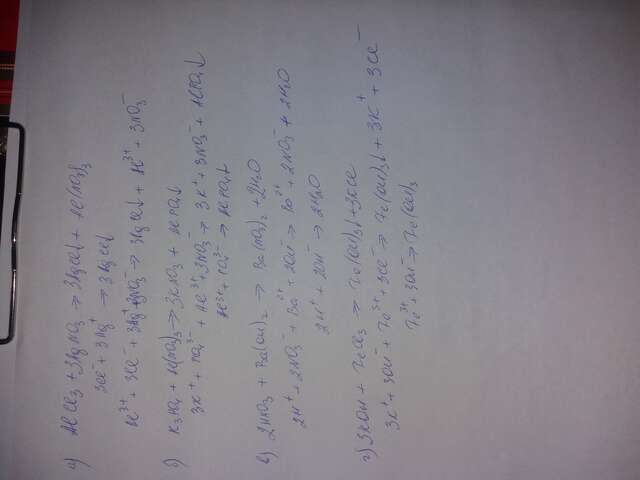 а) AlCl₃ + 3AgNO₃ → 3AgCl↓ + Al(NO₃)₃
3Cl⁻ + 3Ag⁺ → 3AgCl↓
Al³⁺ + 3Cl⁻ + 3Ag⁺ + 3NO₃⁻ → 3AgCl↓ + Al³⁺ + 3NO₃⁻
б) K₃PO₄ + Al(NO₃)₃ → 3KNO₃ + AlPO₄↓
3K⁺ + PO₄³⁻ + Al³⁺ + 3NO₃⁻ → 3K⁺ + 3NO₃⁻ + AlPO₄↓
Al³⁺ + PO₄³⁻ → AlPO₄↓
в) 2HNO₃ + Ba(OH)₂ → Ba(NO₃)₂ + 2H₂O
2H⁺ + 2NO₃⁻ + Ba²⁺ + 2OH⁻ → Ba²⁺ + 2NO₃⁻ + 2H₂O
2H⁺ + 2OH⁻ → 2H₂O
г) 3KOH + FeCl₃ → Fe(OH)₃↓ + 3KCl
3K⁺ + 3OH⁻ + Fe³⁺ + 3Cl⁻ → Fe(OH)₃↓ + 3K⁺ + 3Cl⁻
Fe³⁺ + 3OH⁻ → Fe(OH)₃